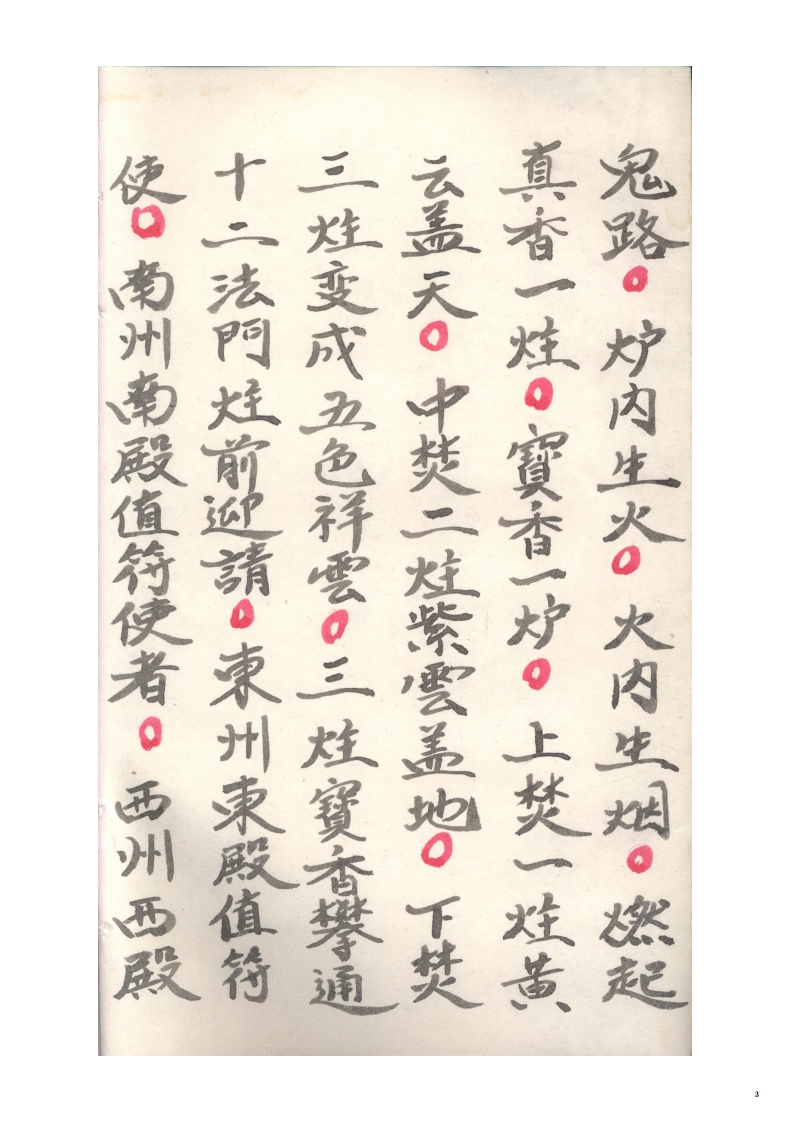 鬼路。炉内生火。火内生烟。燃起
真香一炷。寶香一炉。上焚一炷黃
云盖天。中焚二炷紫雲盖地。下焚
三炷变成五色祥雲。三炷寶香攀通
十二法門炷前迎請。東州東殿值符
使。南州南殿值符使者。西州西殿
3